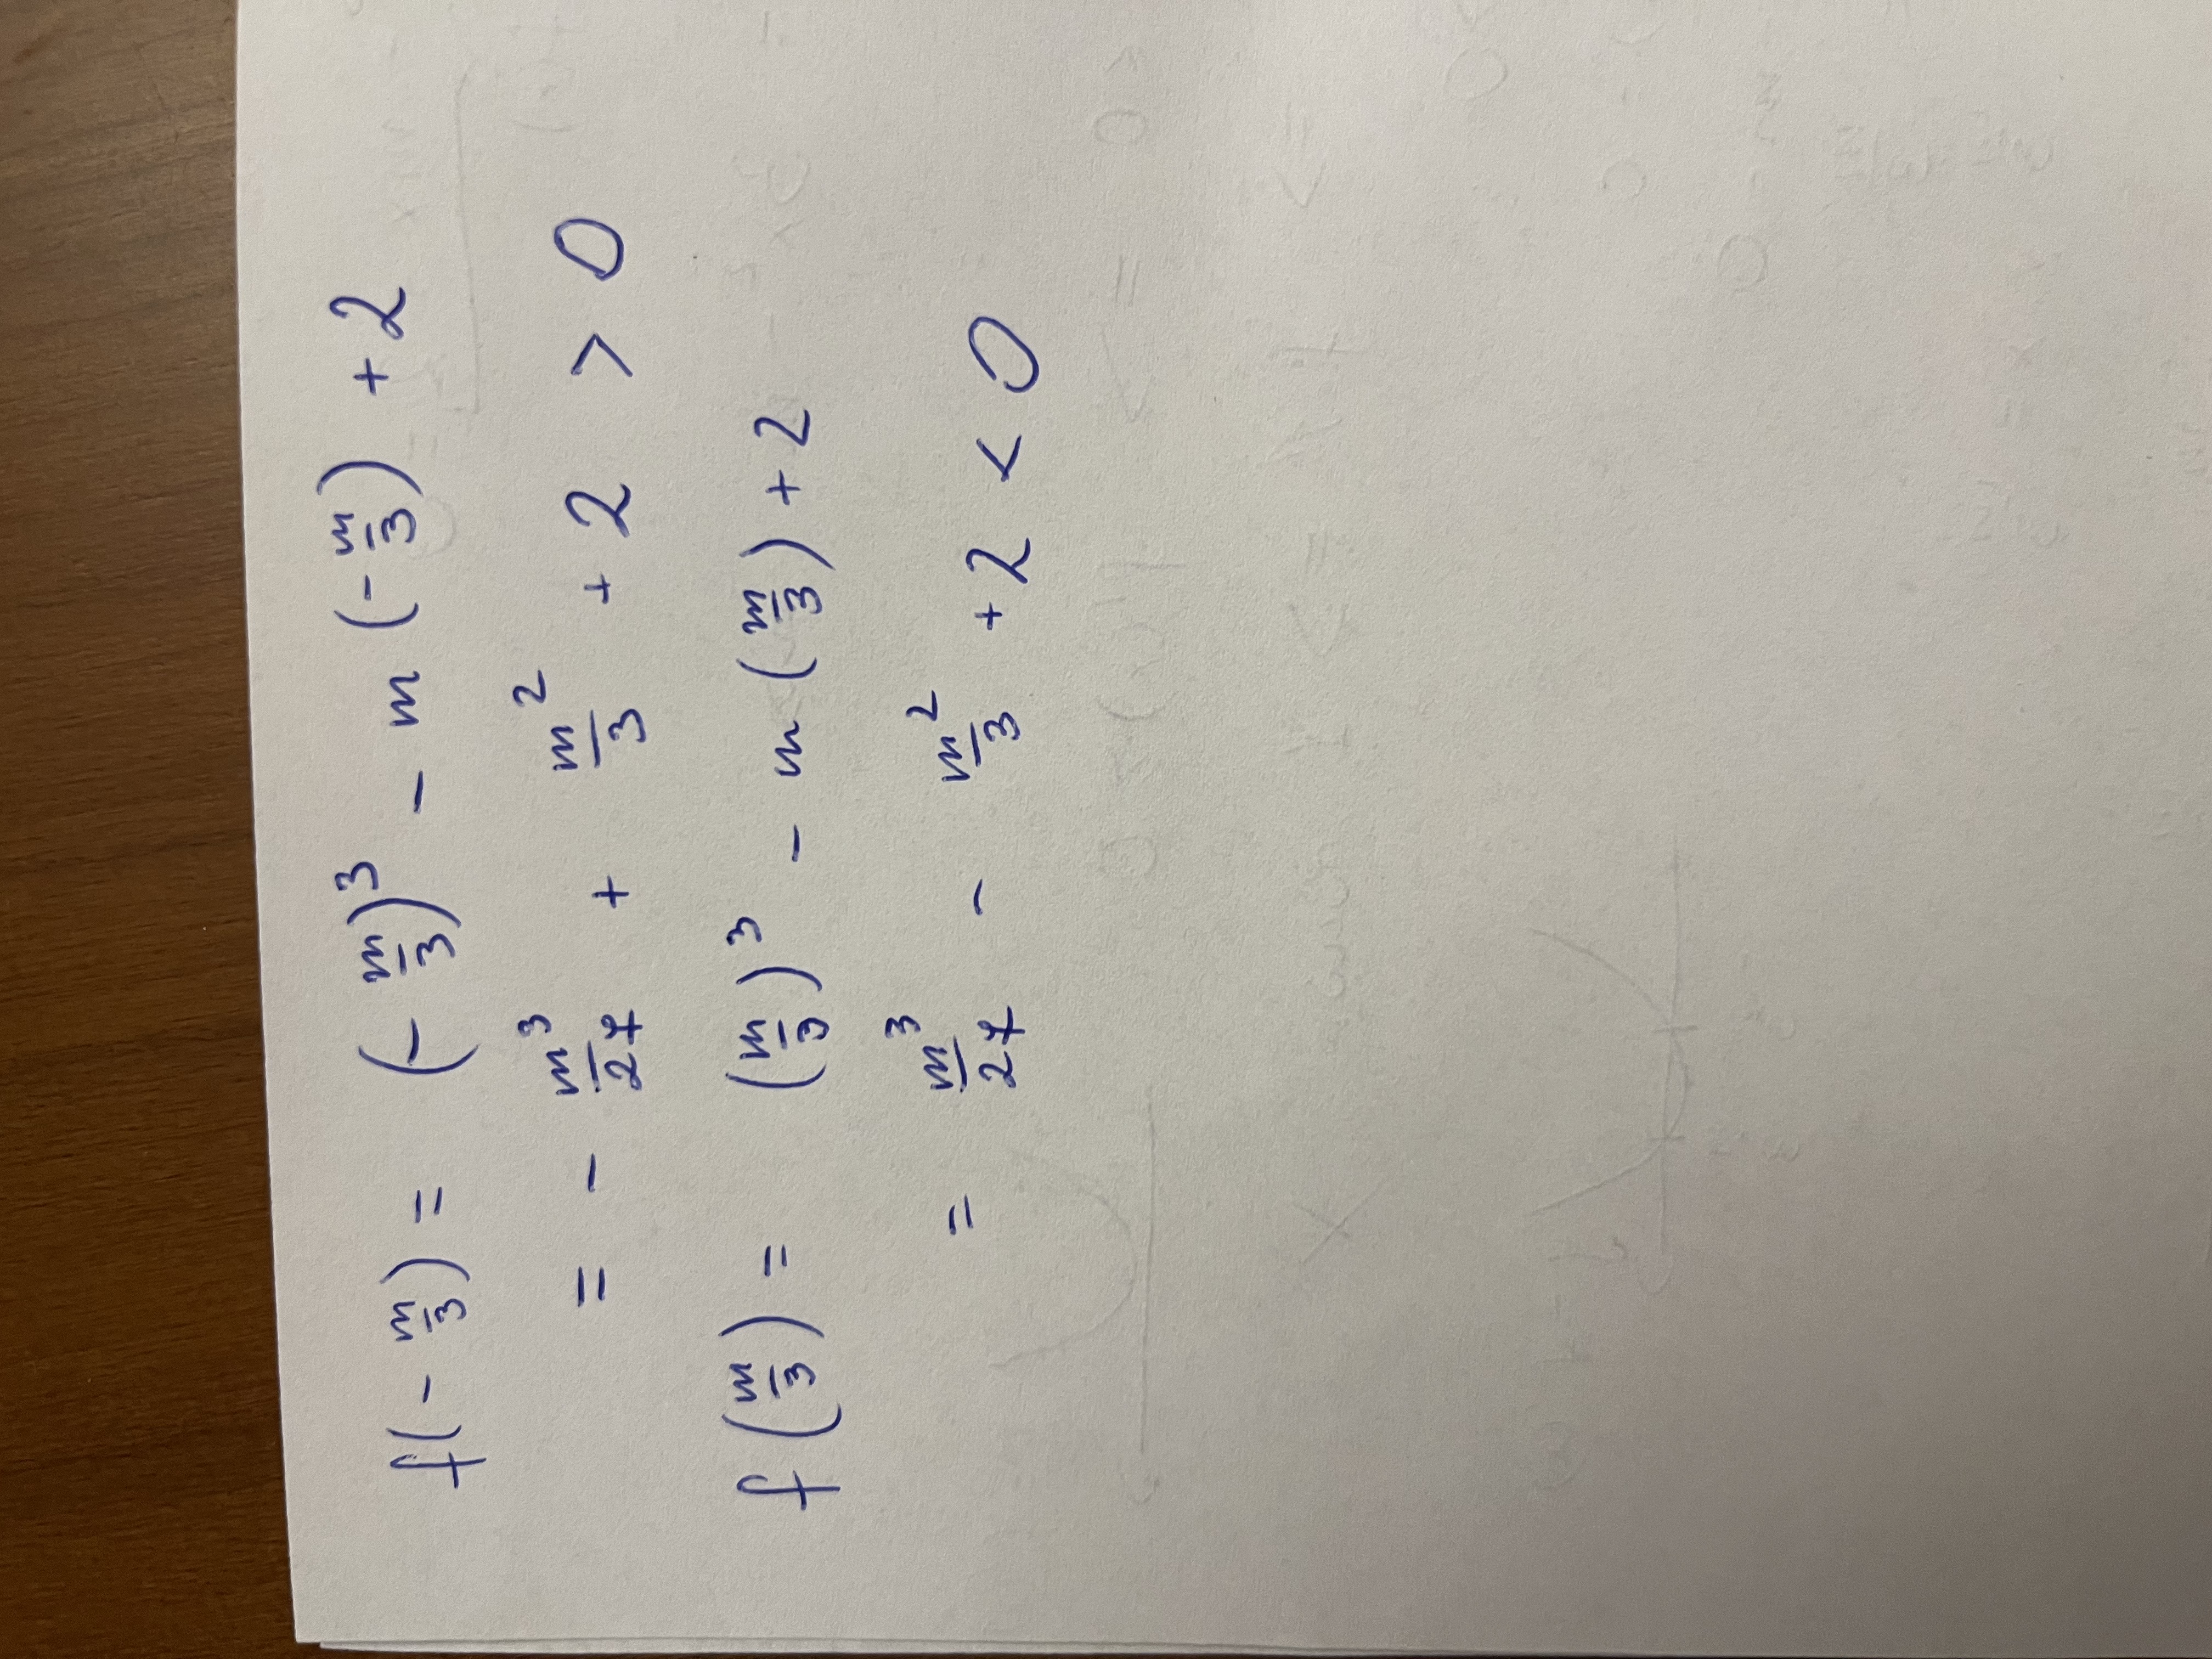 f(-m/3) = (-m/3)^3 - m(-m/3) + 2
= - m^3/27 + m^2/3 + 2 > 0
f(m/3) = (m/3)^3 - m(m/3) + 2
= m^3/27 - m^2/3 + 2 < 0